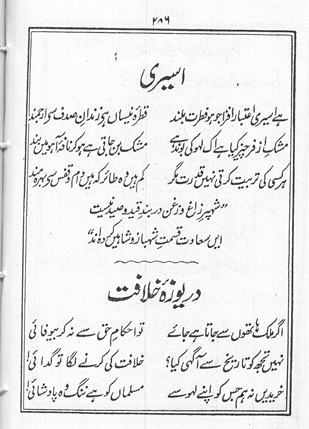 ۲۸۶
اسیری
ہے اسیری اعتبار افزا جو ہو فطرت بلند قطرۂ نیساں ہے زندانِ صدف سے ارجمند
مشکِ ازفر چیز کیا ہے اک لہو کی بوند ہے مشک بن جاتی ہے ہو کر نافۂ آہو میں بند
ہر کسی کی تربیت کرتی نہیں قدرت مگر کم ہیں وہ طائر کہ ہیں دام و قفس سے بہرہ مند
"شہپرِ زاغ و زغن در بندِ قید و صید نیست
ایں سعادت قسمتِ شہباز و شاہیں کردہ اند"
دریوزۂ خلافت
اگر ملک ہاتھوں سے جاتا ہے جائے تو احکامِ حق سے نہ کر بے وفائی
نہیں تجھ کو تاریخ سے آگہی کیا؟ خلافت کی کرنے لگا تو گدائی!
خریدیں نہ ہم جس کو اپنے لہو سے مسلماں کو ہے ننگ وہ پادشائی!